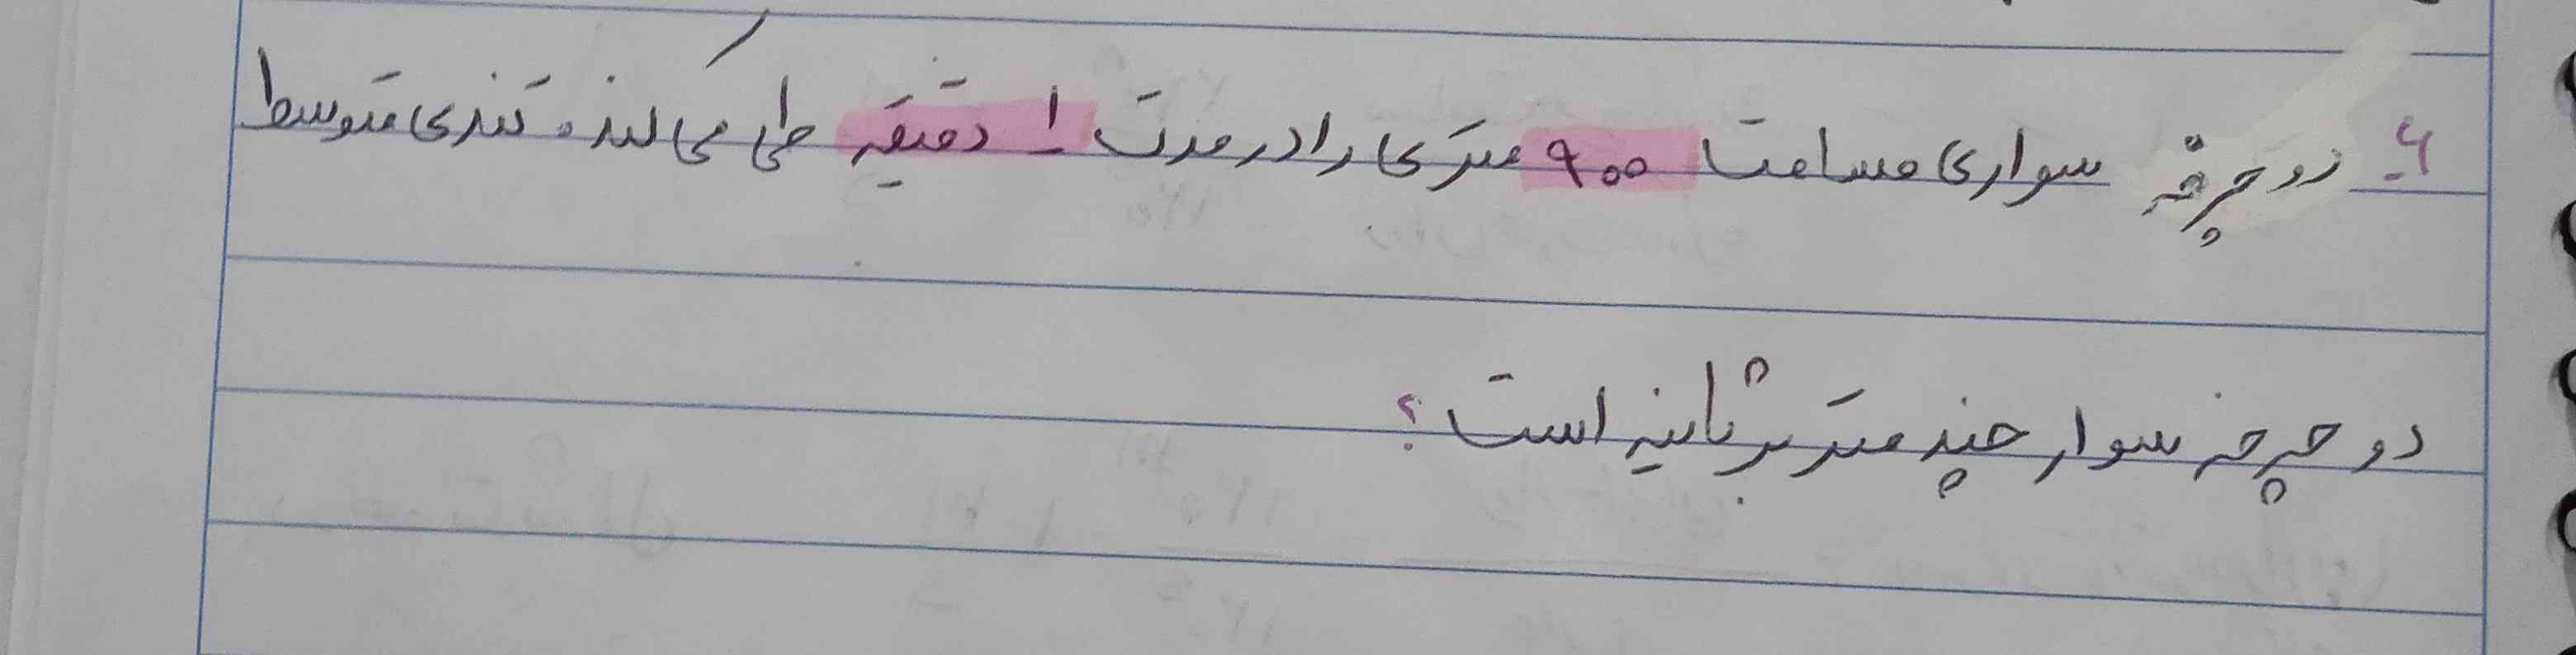 ۶- دوچرخه سواری مسافت ۹۰۰ متری را در مدت ۱ دقیقه طی می کند. تندی متوسط
دوچرخه سوار چند متر بر ثانیه است؟